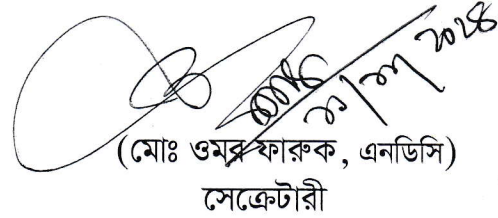 (মোঃ ওমর ফারুক, এনডিসি)
সেক্রেটারী